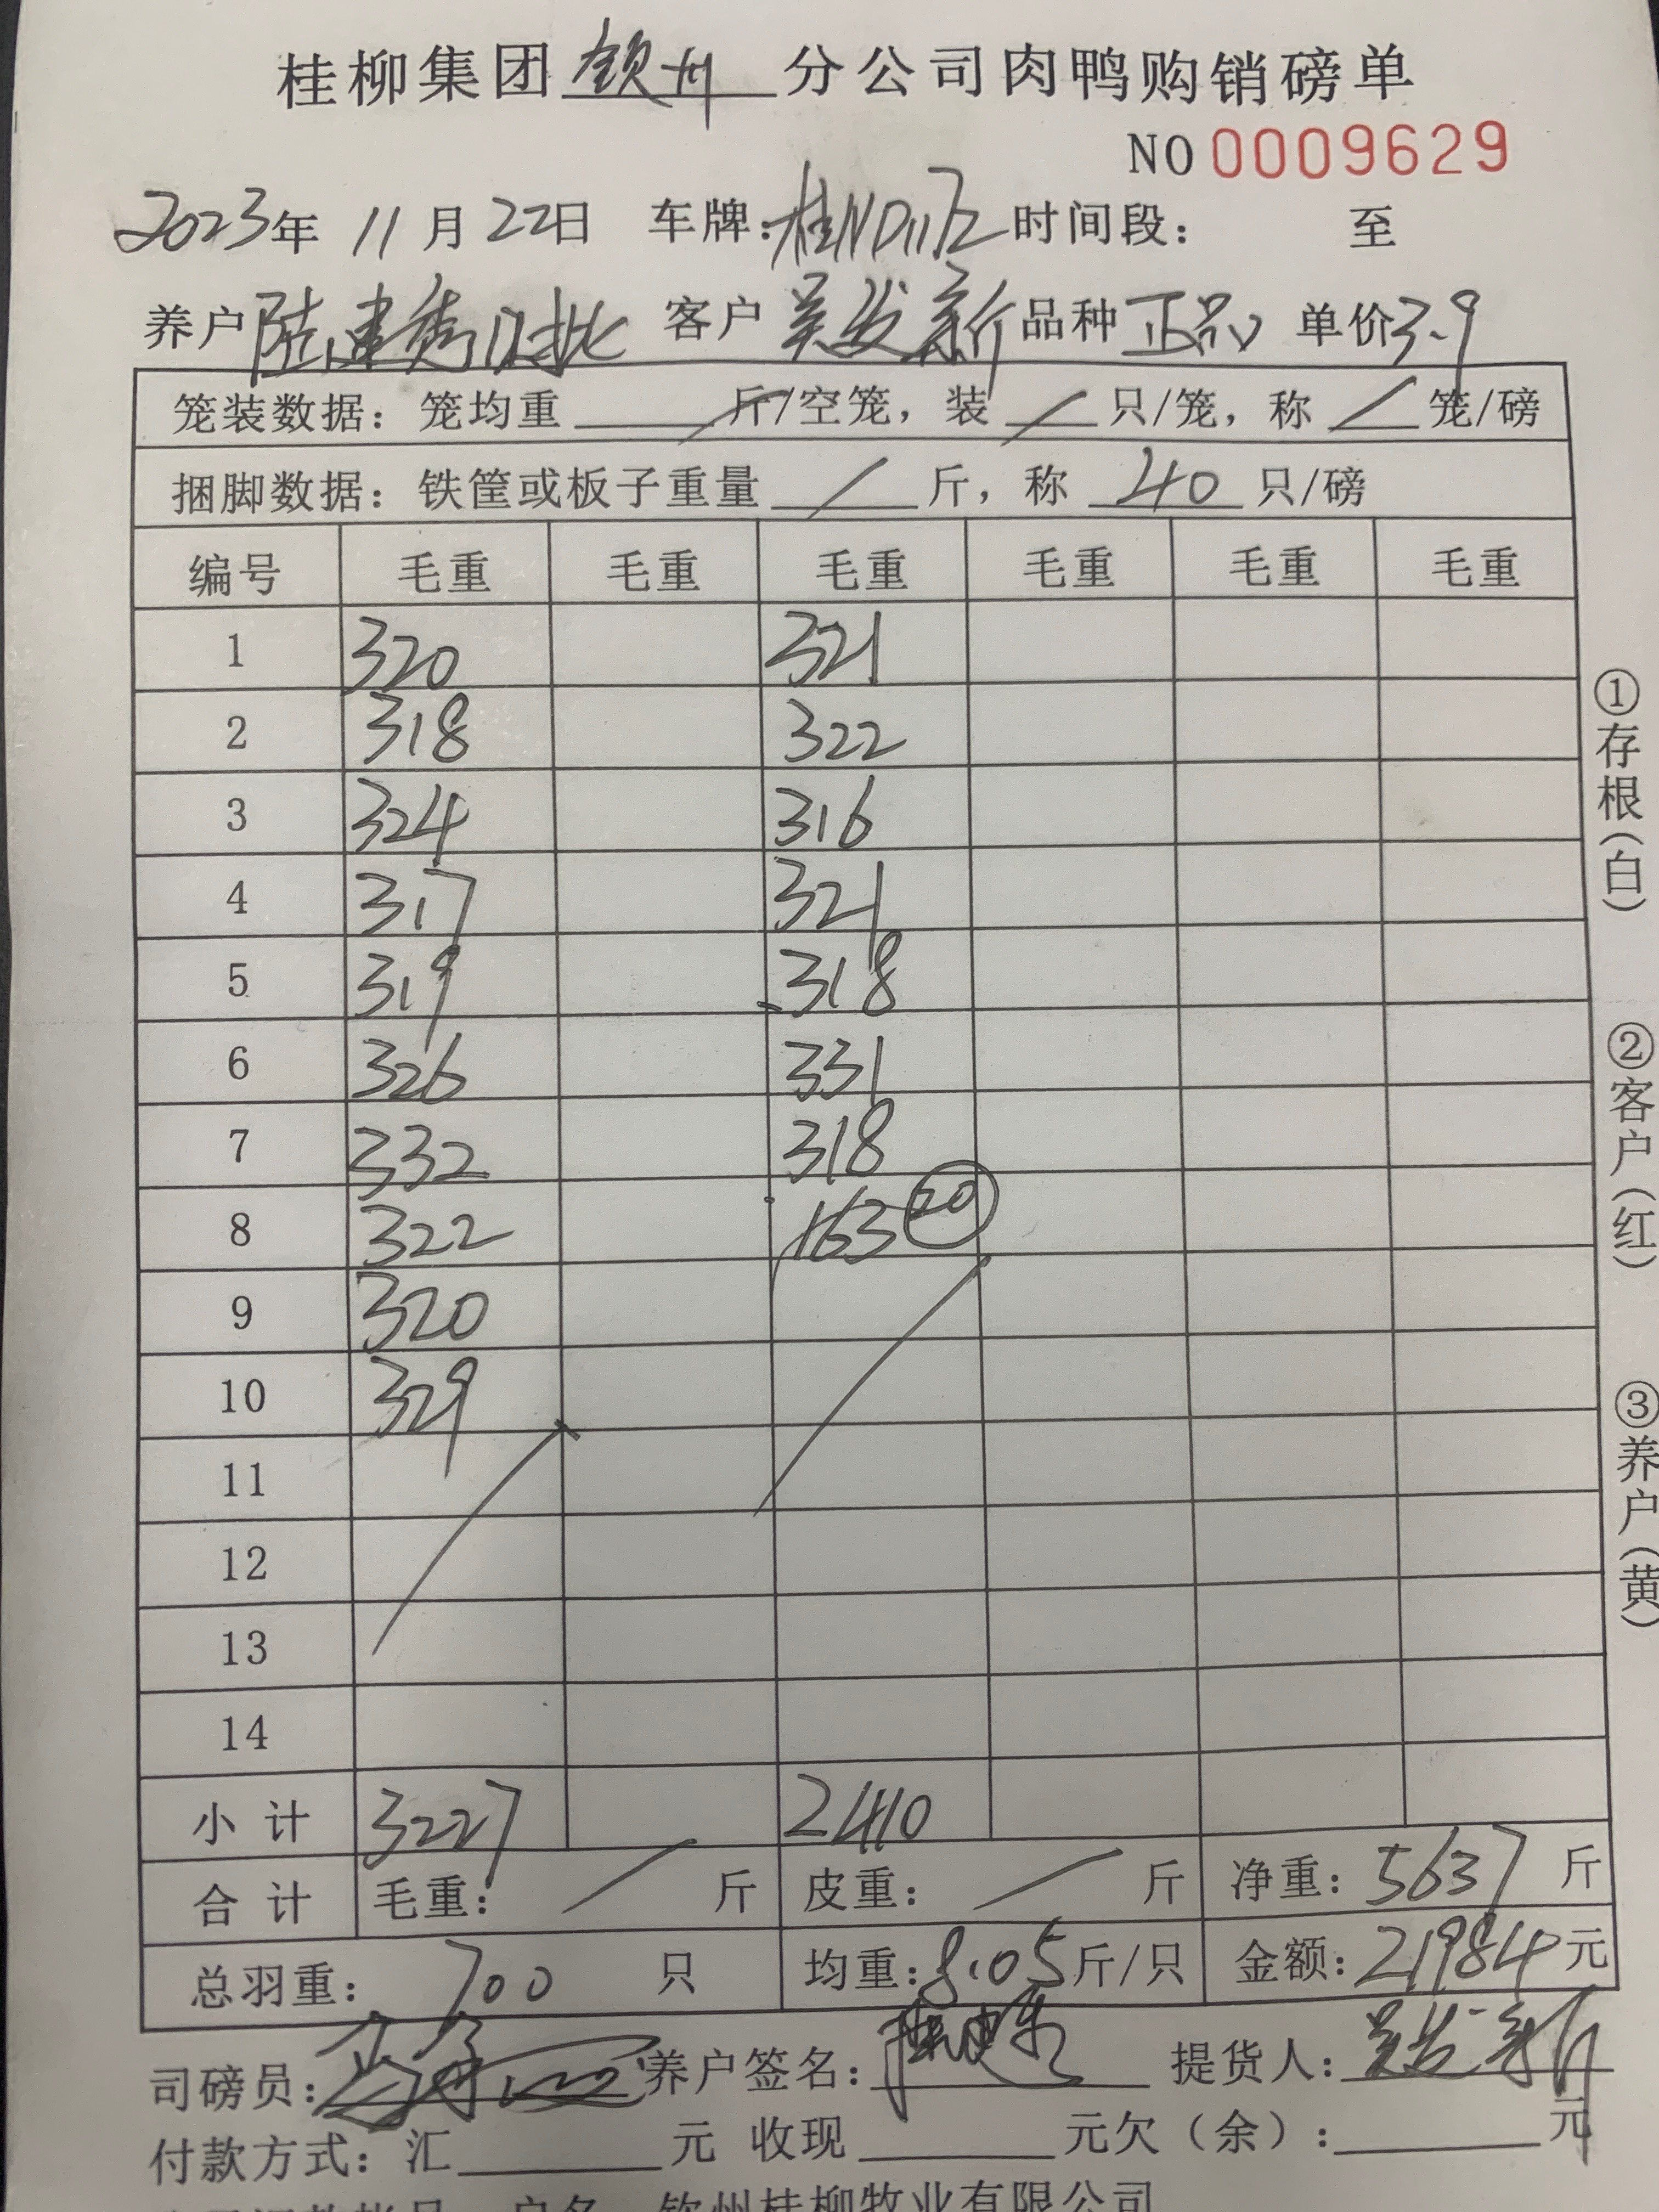 桂柳集团钦州分公司肉鸭购销磅单
NO 0009629
2023年 11月22日 车牌: 时间段: 至
养户陆建秀 客户 吴发新 品种 正品 单价3.9
笼装数据: 笼均重 / 斤/空笼, 装 / 只/笼, 称 / 笼/磅
捆脚数据: 铁筐或板子重量 / 斤, 称 40 只/磅
编号 毛重 毛重 毛重 毛重 毛重 毛重
1 320 321
2 318 322
3 324 316
4 317 321
5 319 318
6 326 331
7 332 318
8 322 163 20
9 320
10 329
11
12
13
14
小计 3227 2410
合计 毛重: / 斤 皮重: / 斤 净重: 5637 斤
总羽重: 700 只 均重: 8.05斤/只 金额: 21984元
司磅员: 养户签名: 提货人: 吴发新
付款方式: 汇 元 收现 元欠(余): 元
户名 钦州桂柳牧业有限公司
①存根(白)
②客户(红)
③养户(黄)